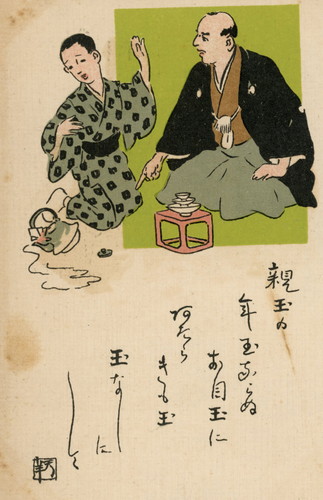 親玉の
年玉ならぬ
お目玉に
あたら
きも玉
玉なしに
しして